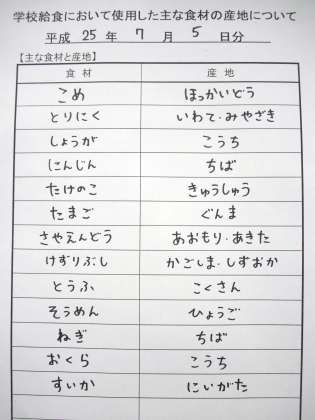 学校給食において使用した主な食材の産地について
平成 25 年 7 月 5 日分
【主な食材と産地】
食材 産地
こめ ほっかいどう
とりにく いわて・みやざき
しょうが こうち
にんじん ちば
たけのこ きゅうしゅう
たまご ぐんま
さやえんどう あおもり・あきた
けずりぶし かごしま・しずおか
とうふ こくさん
そうめん ひょうご
ねぎ ちば
おくら こうち
すいか にいがた